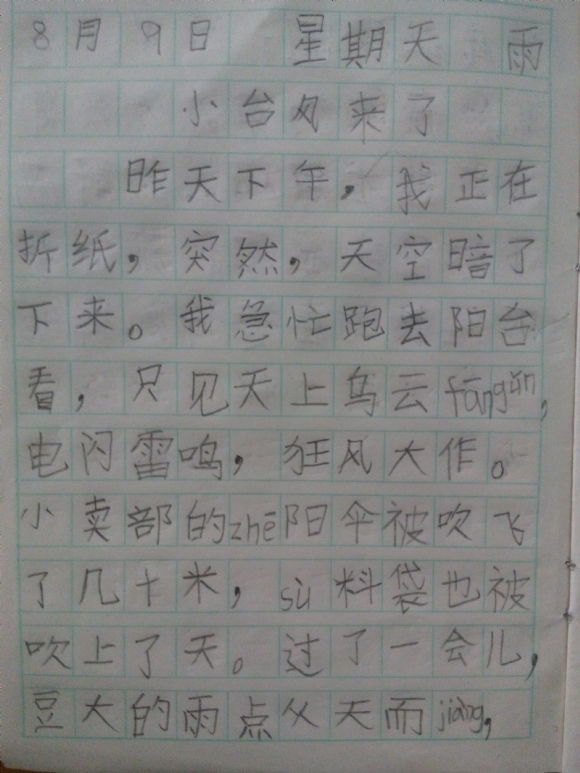 8月9日 星期天 雨
小台风来了
昨天下午，我正在
折纸，突然，天空暗了
下来。我急忙跑去阳台
看，只见天上乌云fāngǔn，
电闪雷鸣，狂风大作。
小卖部的zhē阳伞被吹飞
了几十米，sù料袋也被
吹上了天。过了一会儿，
豆大的雨点从天而jiàng，